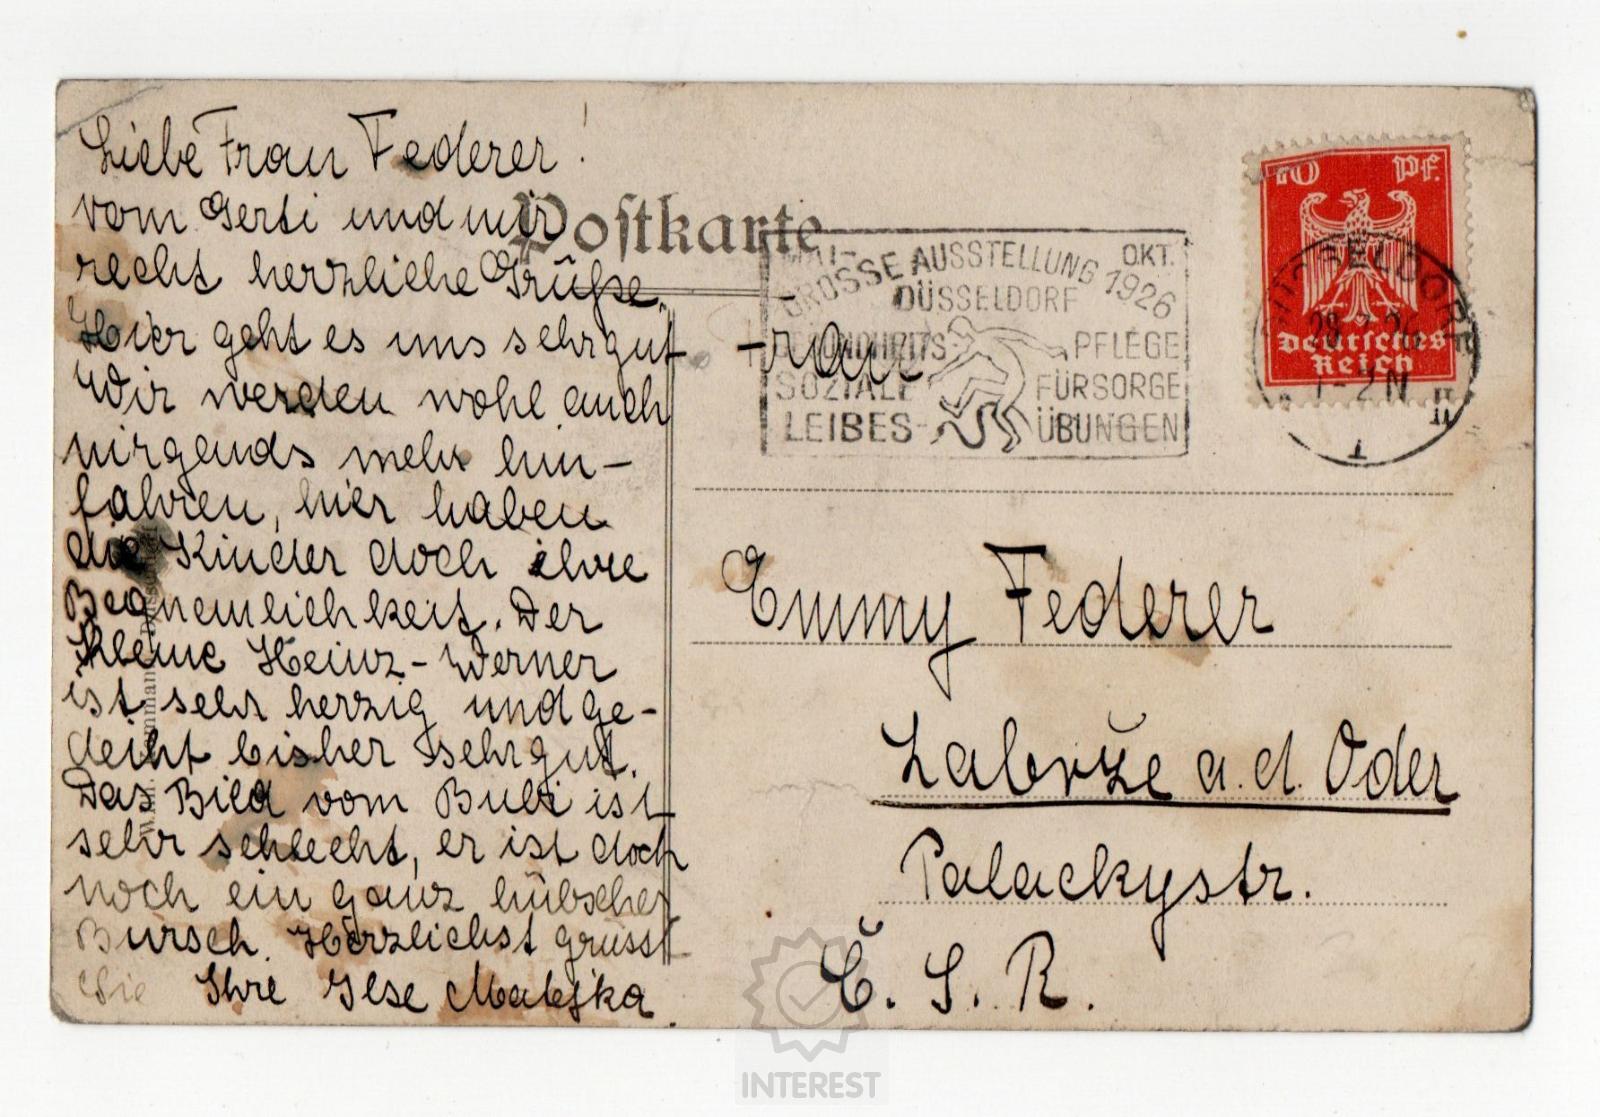 Liebe Frau Federer!
vom Gerti und mir
recht herzliche Grüße.
Hier geht es uns sehr gut
Wir werden wohl auch
nirgends mehr hin-
fahren, hier haben
die Kinder doch ihre
Bequemlichkeit. Der
kleine Heinz-Werner
ist sehr herzig und ge-
deiht bisher sehr gut.
Das Bild vom Bubi ist
sehr schlecht, er ist doch
noch ein ganz hübscher
Bursch. Herzlichst grüsst
Sie Ihre Ilse Matejka
Postkarte
10 Pf.
Deutsches
Reich
DÜSSELDORF
1-2N
1
II
MAI- OKT.
GROSSE AUSSTELLUNG 1926
DÜSSELDORF
GESUNDHEITS PFLEGE
SOZIALE FÜRSORGE
LEIBES- ÜBUNGEN
Frau
Emmy Federer
Zabrže a. d. Oder
Palackystr.
Č. S. R.
INTEREST